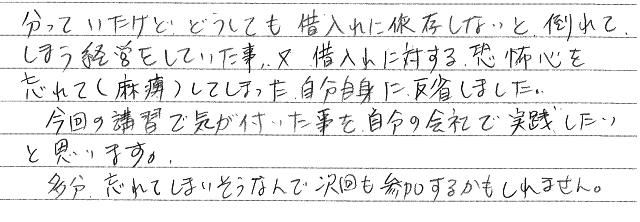 分っていたけど、どうしても借入れに依存しないと、倒れて
しまう経営をしていた事、又借入れに対する、恐怖心を
忘れて(麻痺)してしまった、自分自身に反省しました。
今回の講習で気が付いた事を、自分の会社で実践したい
と思います。
多分、忘れてしまいそうなんで次回も参加するかもしれません。